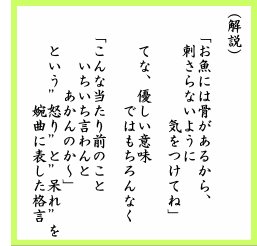 (解説)
「お魚には骨があるから、
刺さらないように
気をつけてね」
てな、優しい意味
ではもちろんなく
「こんな当たり前のこと
いちいち言わんと
あかんのか～」
という”怒り”と”呆れ”を
婉曲に表した格言